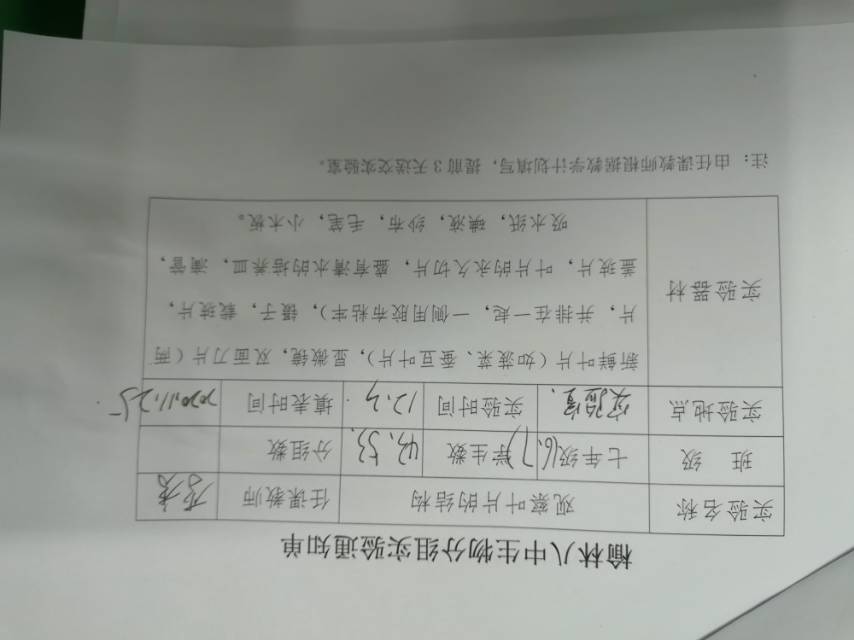 榆林八中生物分组实验通知单
实验名称 观察叶片的结构 任课教师
班 级 七年级(6.7) 学生数 43.53. 分组数
实验地点 实验室. 实验时间 12.3. 填表时间 2020.11.25
实验器材 新鲜叶片(如菠菜、蚕豆叶片),显微镜,双面刀片(两
片,并排在一起,一侧用胶布粘牢),镊子,载玻片,
盖玻片,叶片的永久切片,盛有清水的培养皿,滴管,
吸水纸,碘液,纱布,毛笔,小木板。
注:由任课教师根据教学计划填写,提前3天送交实验室。